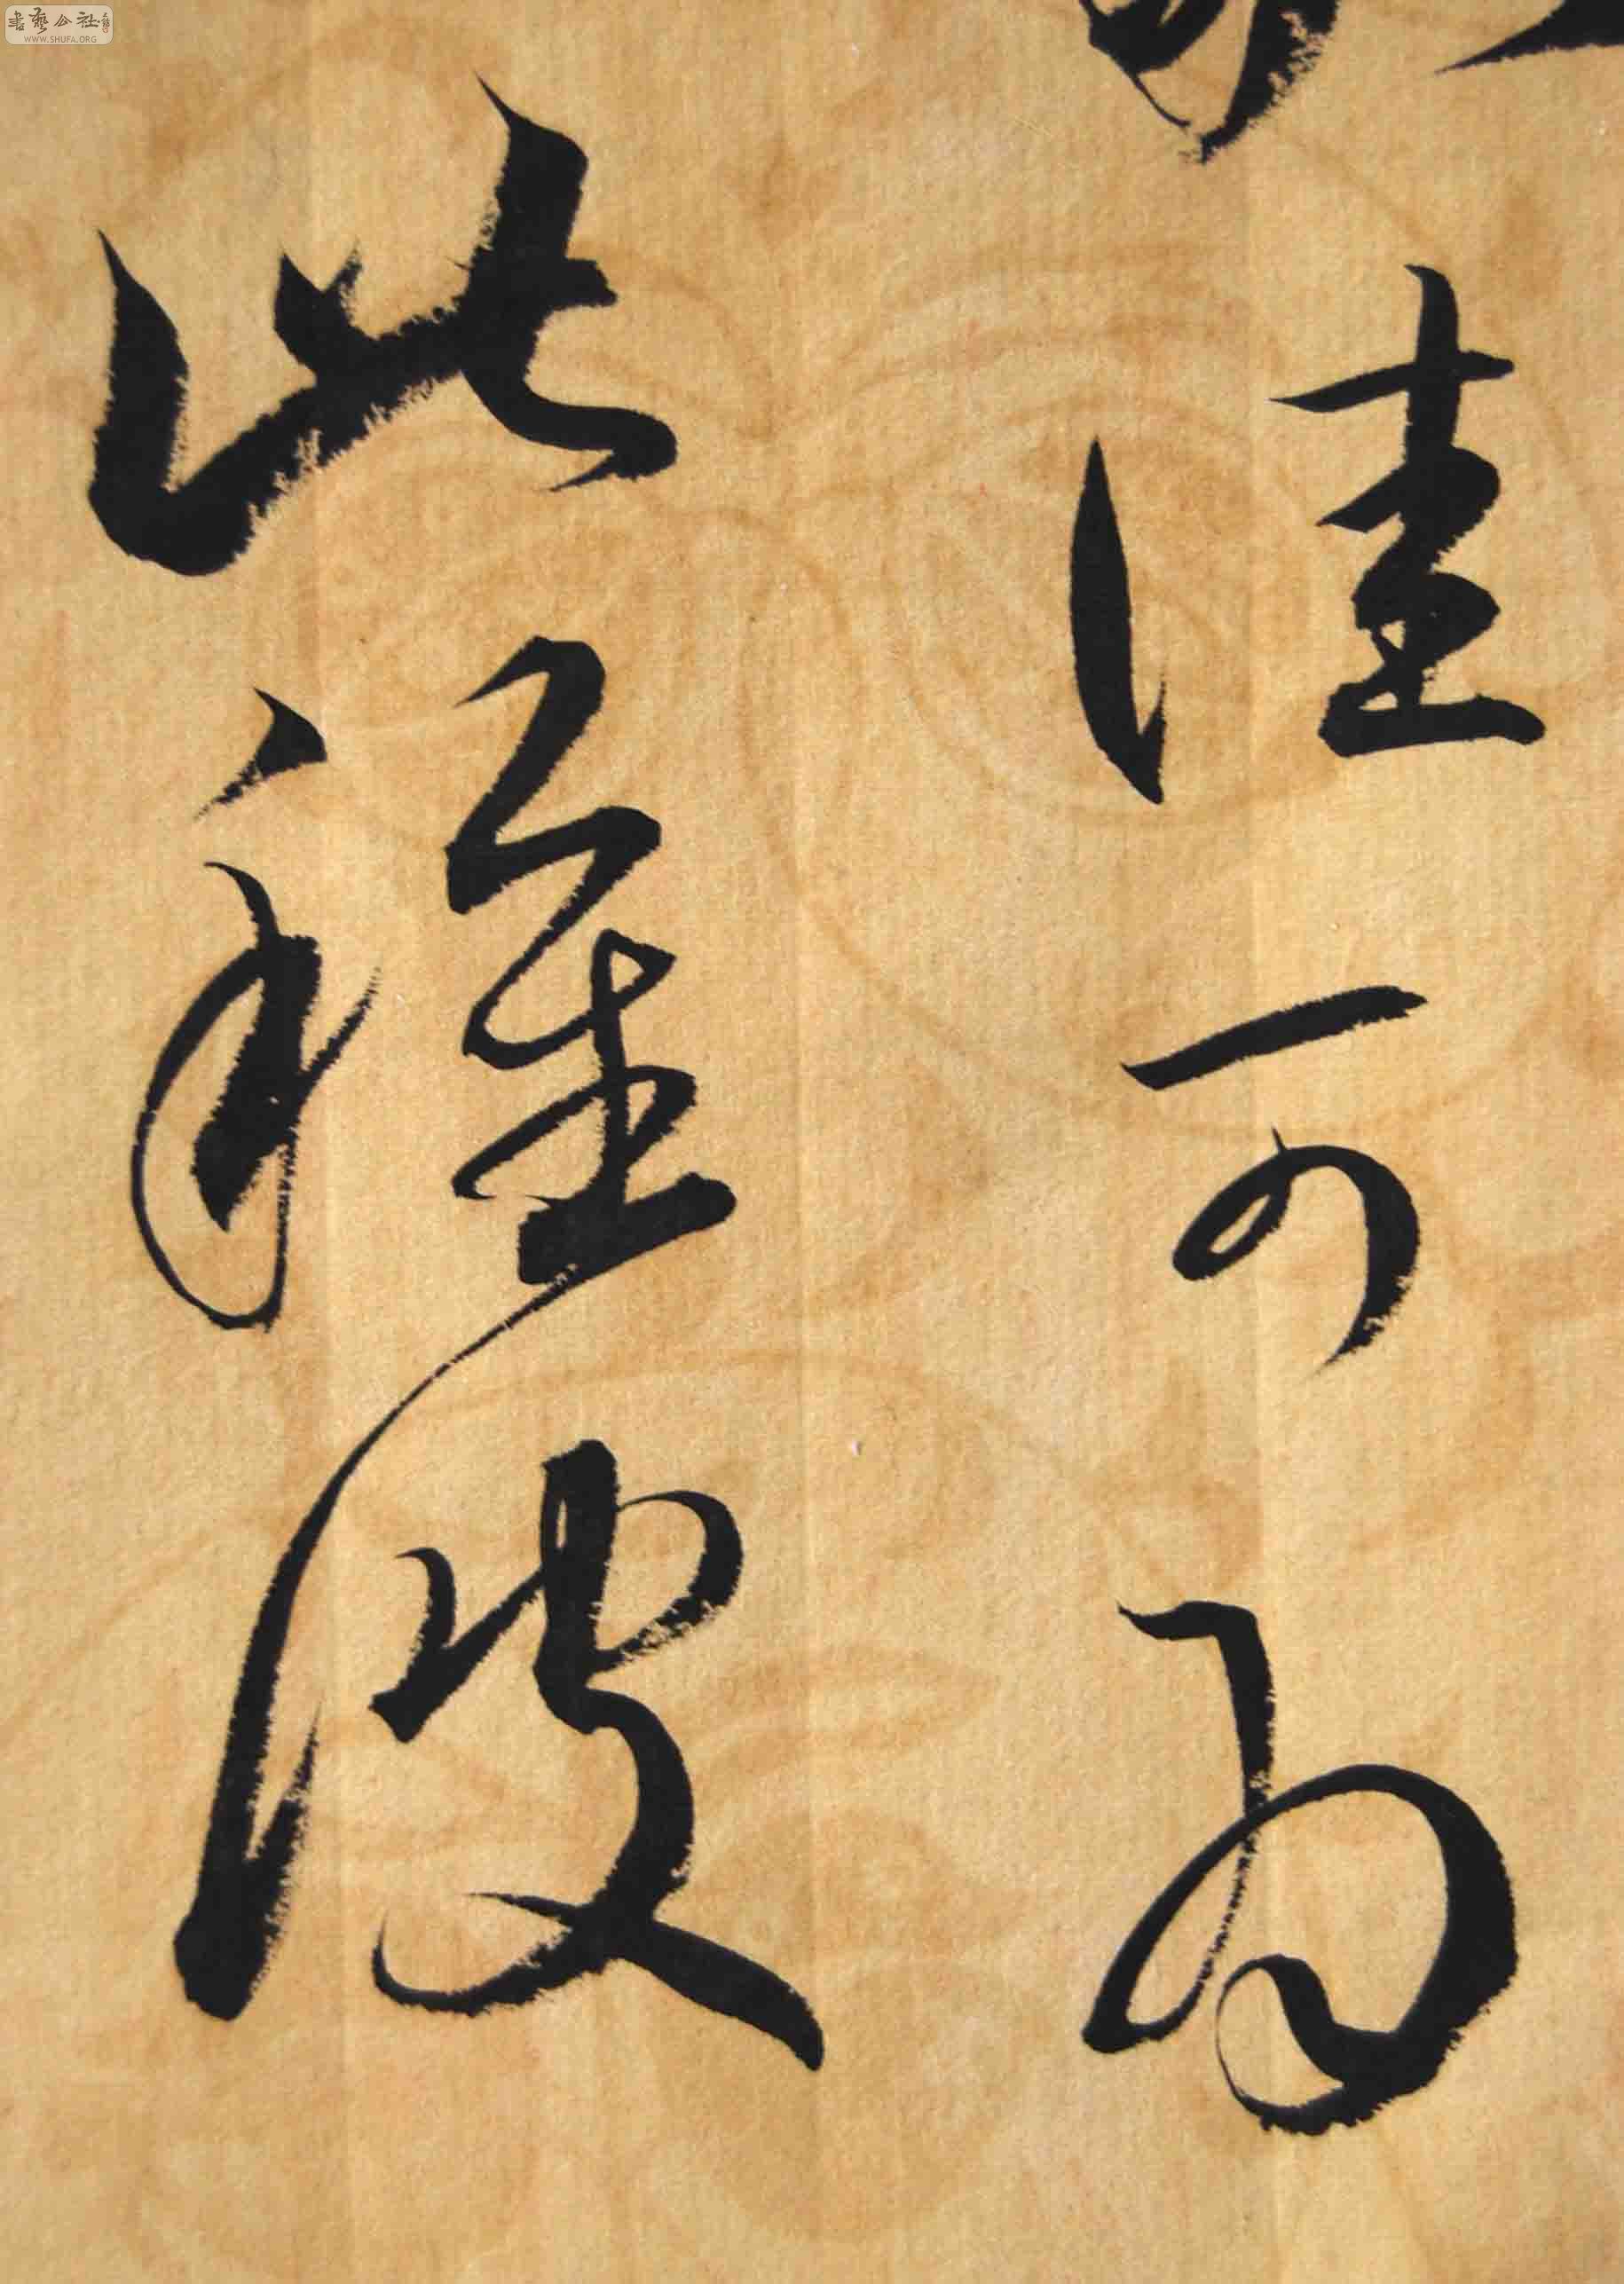 書藝公社
WWW.SHUFA.ORG
佳可為
此種彼